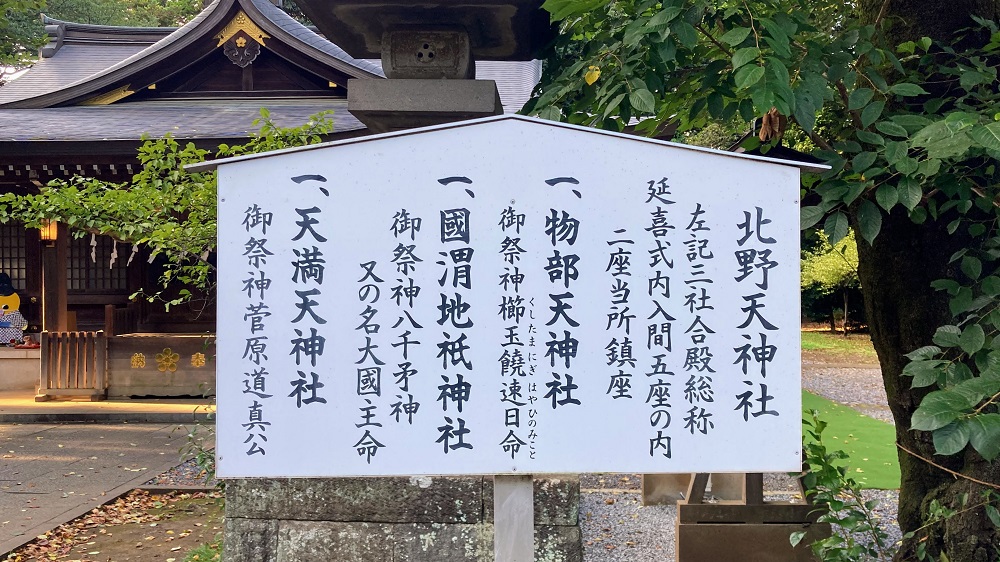 北野天神社
左記三社合殿総称
延喜式内入間五座の内
二座当所鎮座
一、物部天神社
御祭神櫛玉饒速日命
くしたまにぎはやひのみこと
一、國渭地祇神社
御祭神八千矛神
又の名大國主命
一、天満天神社
御祭神菅原道真公
奉
納